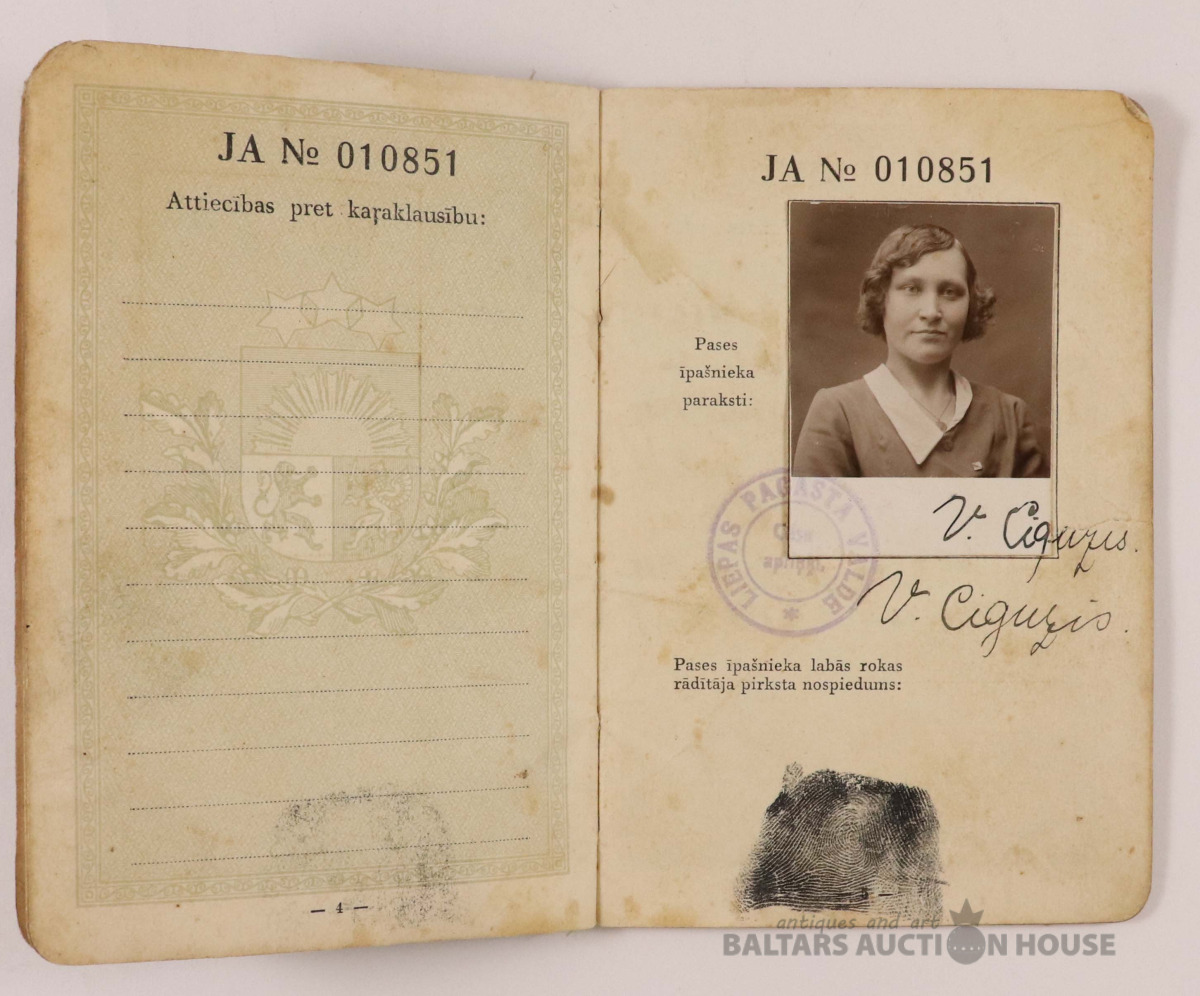 JA № 010851
Attiecības pret kaŗaklausību:
— 4 —
JA № 010851
Pases
īpašnieka
paraksti:
LIEPAS PAGASTA VALDE *
Cēsu
apriņķī.
V. Ciguzis.
V. Ciguzis.
Pases īpašnieka labās rokas
rādītāja pirksta nospiedums:
antiques and art
BALTARS AUCTION HOUSE